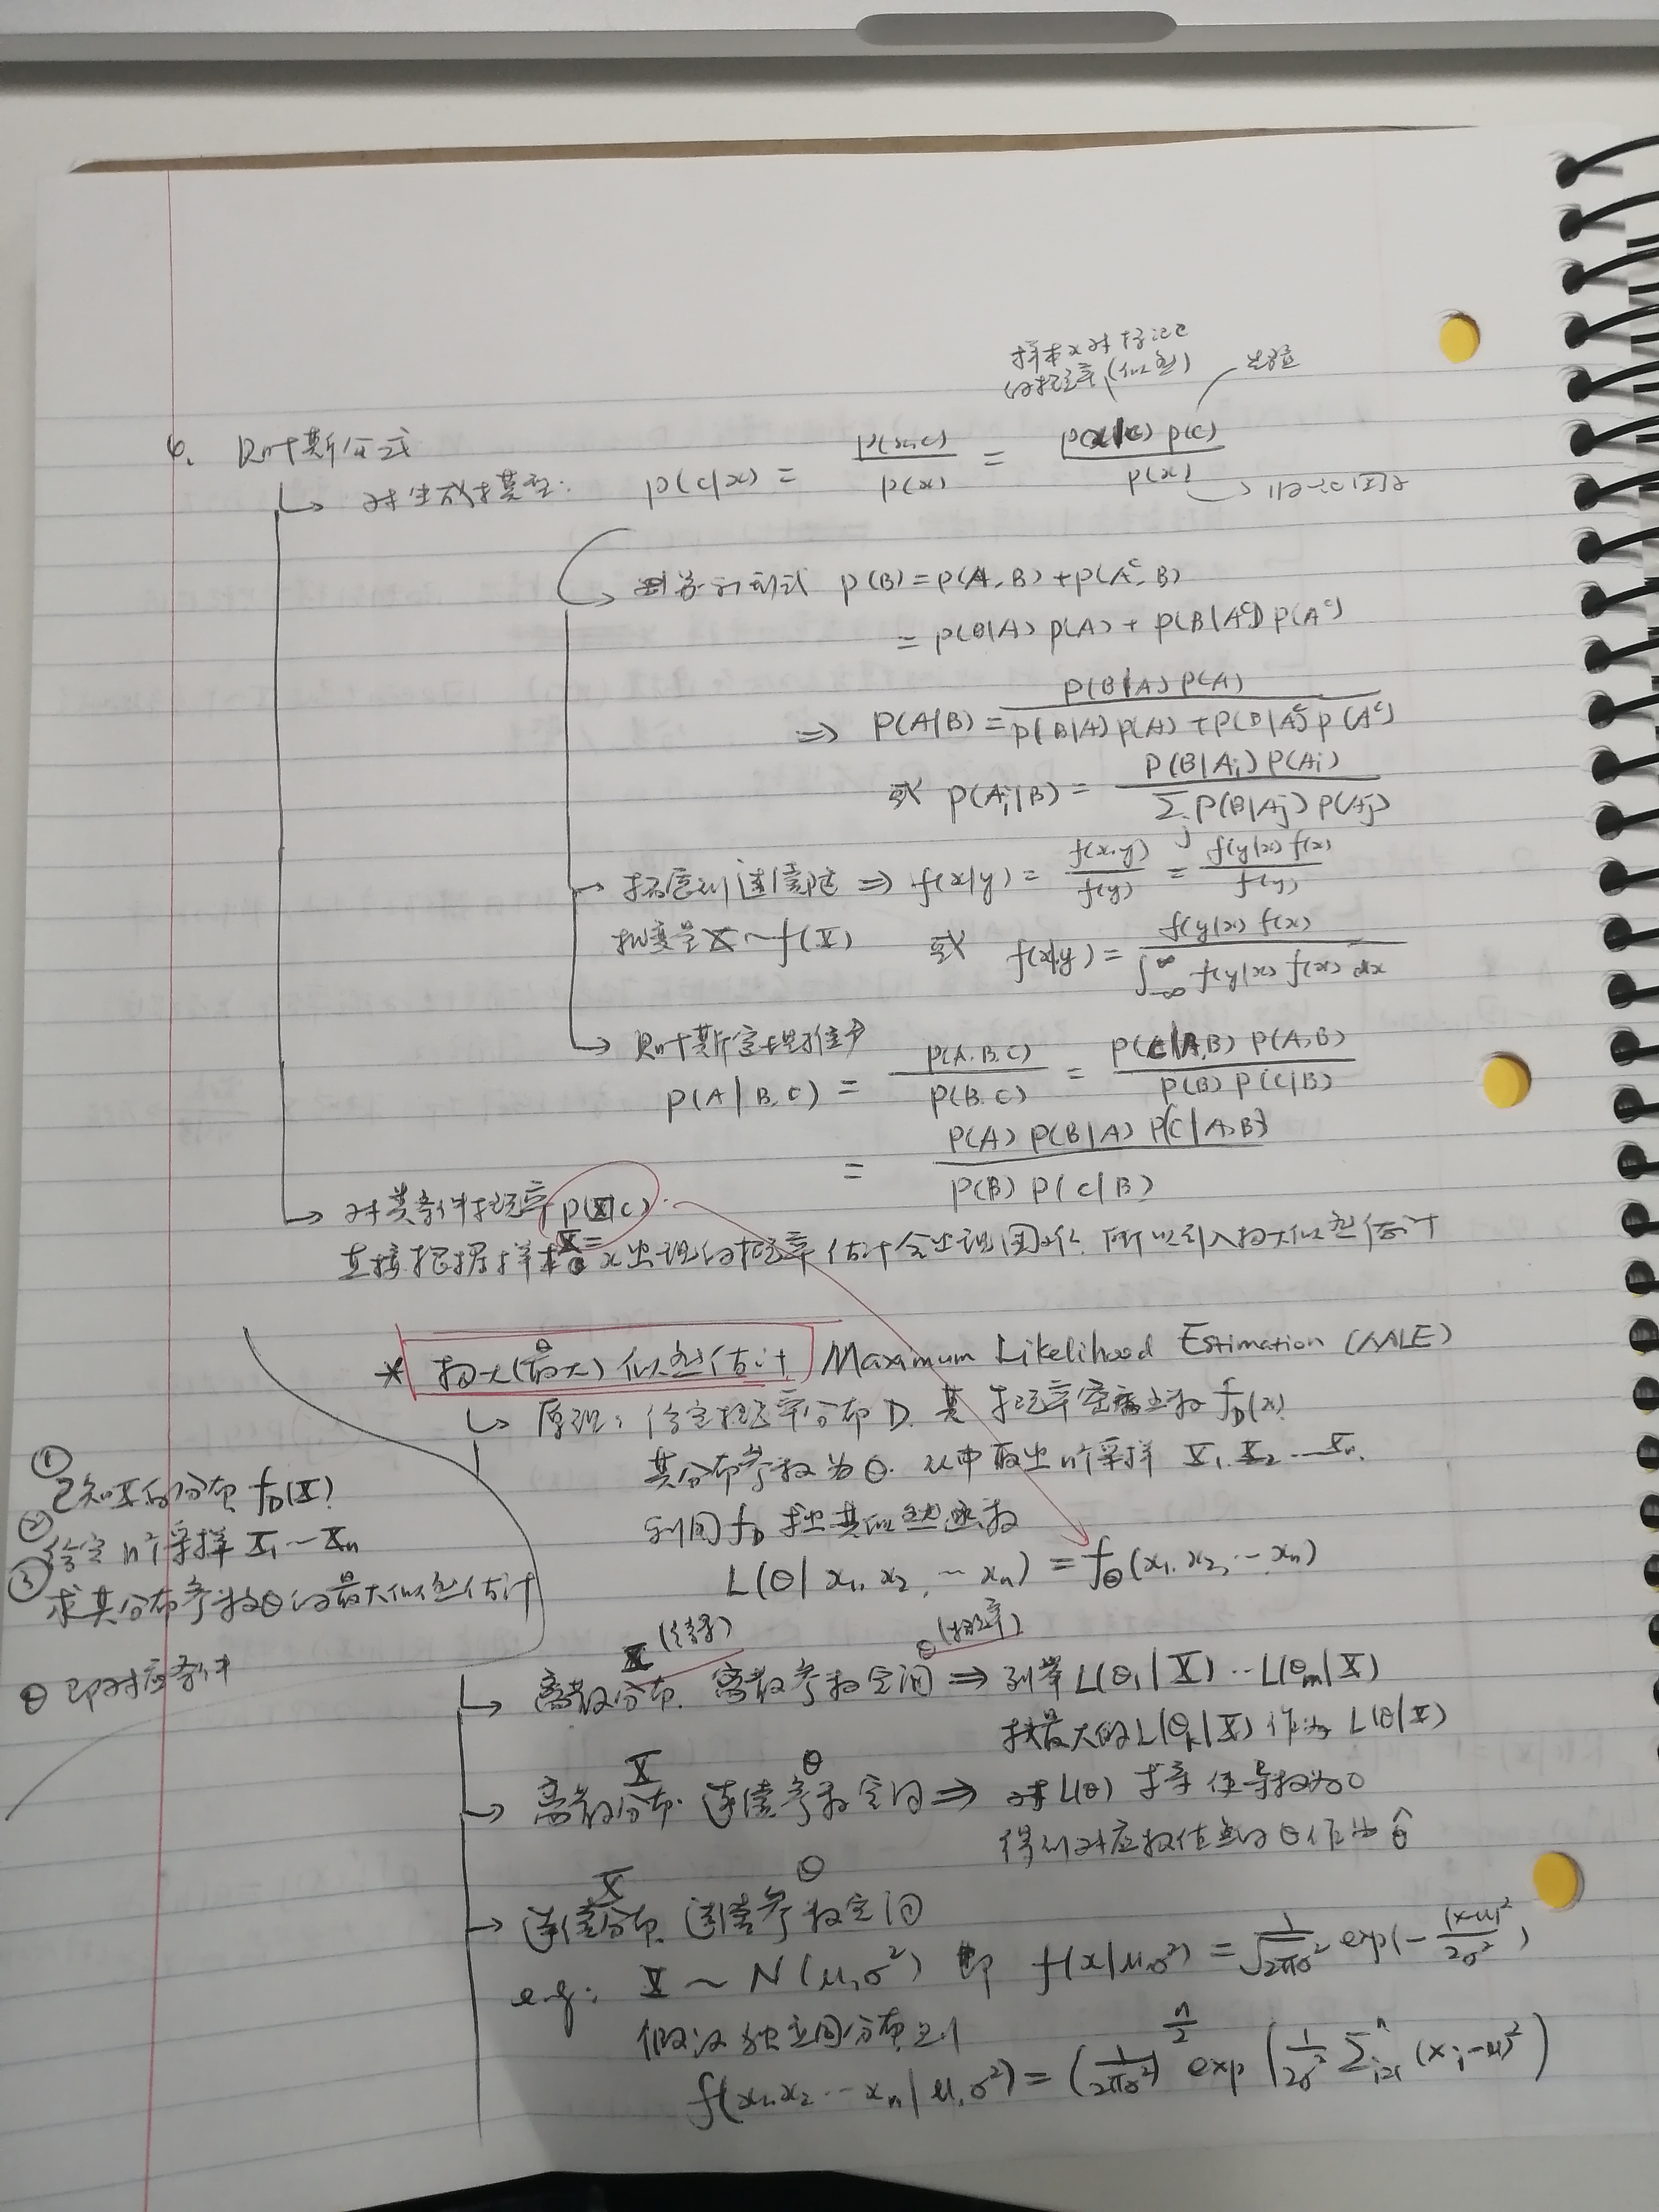 样本x对标记c
的概率(似然)
先验
6. 贝叶斯公式
对生成模型: p(c|x) = p(x,c) / p(x) = p(x|c) p(c) / p(x)
p(B) = p(A,B) + p(A^c,B)
= p(B|A) p(A) + p(B|A^c) p(A^c)
⇒ p(A|B) = p(B|A) p(A) / p(B|A) p(A) + p(B|A^c) p(A^c)
或 p(A_i|B) = p(B|A_i) p(A_i) / Σ_j p(B|A_j) p(A_j)
拓展到连续随 ⇒ f(x|y) = f(x,y) / f(y) = f(y|x) f(x) / f(y)
机变量X~f(X) 或 f(x|y) = f(y|x) f(x) / ∫_{-∞}^{∞} f(y|x) f(x) dx
贝叶斯定理推广
p(A|B,C) = p(A,B,C) / p(B,C) = p(C|A,B) p(A,B) / p(B) p(C|B)
= p(A) p(B|A) p(C|A,B) / p(B) p(C|B)
对类条件概率 p(X|c)
X=
直接根据样本x出现的概率估计会出现困难, 所以引入极大似然估计
* 极大(最大)似然估计 Maximum Likelihood Estimation (MLE)
原理: 给定概率分布D, 其概率密度函数 f_D(x)
其分布参数为θ. 从中取出n个采样 X_1, X_2 ... X_n.
利用f_D 求出其似然函数
L(θ|x_1, x_2, ... x_n) = f_θ(x_1, x_2, ... x_n)
① 已知X的分布 f_D(X)
② 给定n个采样 X_1 ... X_n
③ 求其分布参数θ的最大似然估计
θ即对应条件
X θ(概率)
离散分布. 离散参数空间 ⇒ 列举 L(θ_1|X) ... L(θ_m|X)
找最大的L(θ_k|X)作为 L(θ|X)
X θ
离散分布. 连续参数空间 ⇒ 对L(θ) 求导 使导数为0
得到对应极值点的θ作为 θ̂
X θ
连续分布. 连续参数空间
e.g: X ~ N(μ,σ²) 即 f(x|μ,σ²) = 1/√2πσ² exp(- (x-μ)² / 2σ²)
假设独立同分布 则
f(x_1,x_2 ... x_n|μ,σ²) = (1/2πσ²)^{n/2} exp(1/2σ² Σ_{i=1}^{n} (x_i-μ)²)